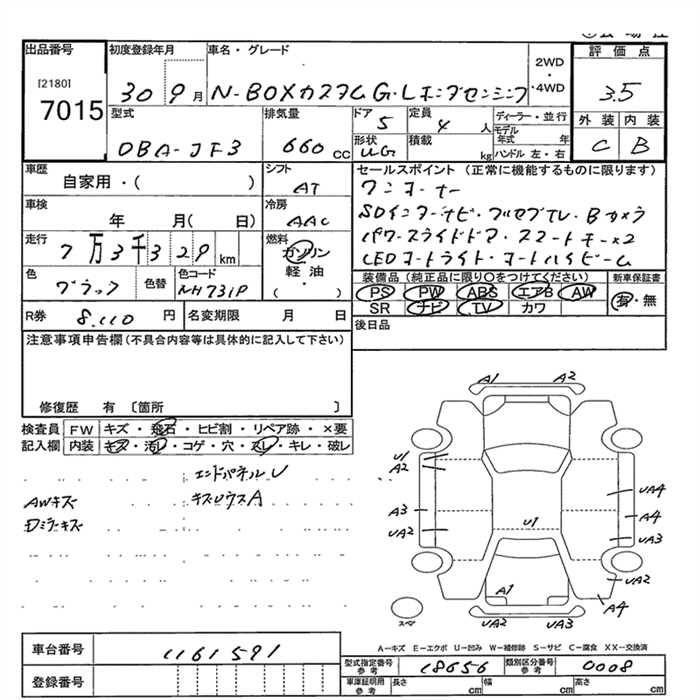 出品番号 [2180] 7015
初度登録年月 30 9月
車名・グレード N-BOXカスタム G・Lホンダセンシング
2WD・4WD
評価点 3.5
外装 C 内装 B
型式 DBA-JF3
排気量 660 CC
ドア 5
形状 UG
定員 4 人
積載 kg
ディーラー・並行
モデル年式 年
ハンドル 左・右
車歴 自家用・( )
シフト AT
車検 年 月( 日)
冷房 AAC
走行 7万3千329 km
燃料 ガソリン 軽油・( )
色 ブラック
色替
色コード NH731P
R券 8,110 円
名変期限 月 日
セールスポイント (正常に機能するものに限ります)
ワンオーナー
SDインターナビ・フルセグTV・Bカメラ
パワースライドドア・スマートキーx2
LEDオートライト・オートハイビーム
装備品 (純正品に限り○をつけてください)
PS PW ABS エアB AW
SR ナビ TV カワ
新車保証書 有・無
後日品
注意事項申告欄(不具合内容等は具体的に記入して下さい)
修復歴 有 〔箇所 〕
検査員記入欄
FW キズ・飛石・ヒビ割・リペア跡・×要
内装 キズ・汚レ・コゲ・穴・スレ・キレ・破レ
エンドパネルU
AWキズ キズUウスA
Dミラーキズ
A1 A2
U1
A2
UA4
A3
A4
UA2
U1
UA3
A1
UA2
A4
UA2 UA3
スペア
A-キズ E-エクボ U-凹み W-補修跡 S-サビ C-腐食 XX-交換済
車台番号 1161591
登録番号
型式指定番号 参考 18656
類別区分番号 参考 0008
車庫証明用 参考 長さ cm 幅 cm 高さ cm